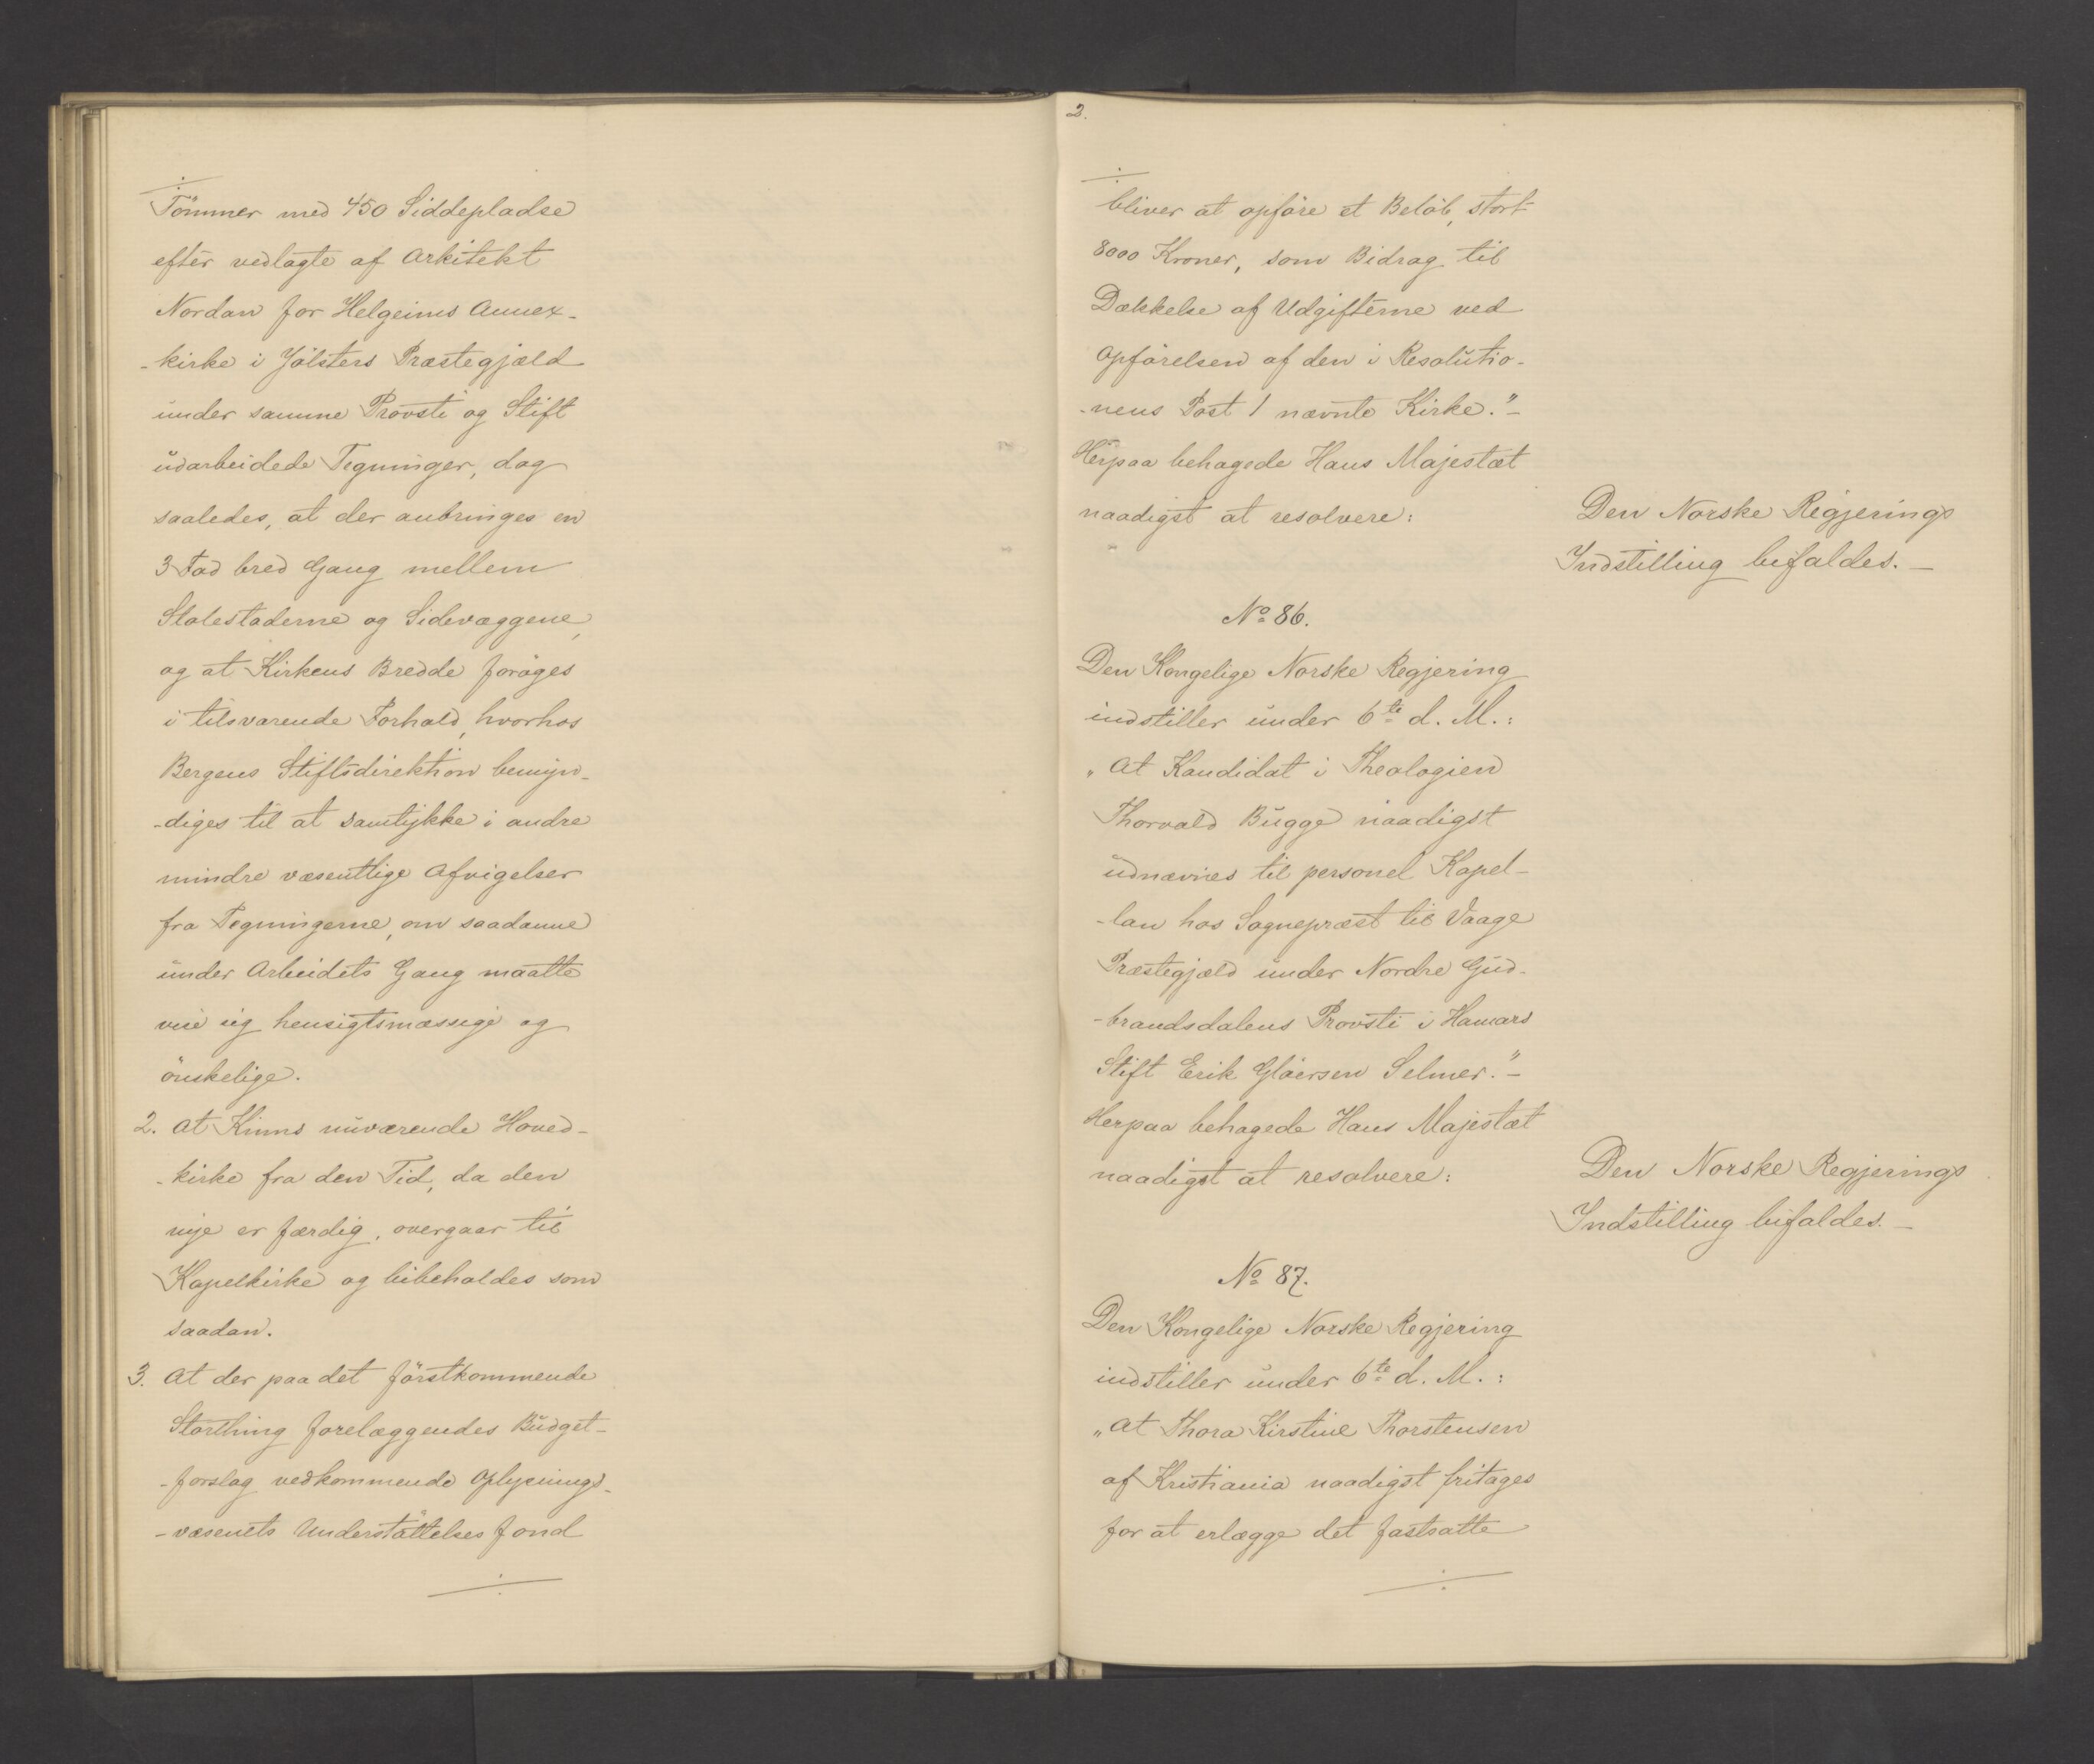 Tömmer med 450 Siddepladse
efter vedlagte af Arkitekt
Nordan for Helgeims Annex-
-kirke i Jölsters Præstegjæld
under samme Provsti og Stift
udarbeidede Tegninger, dog
saaledes, at der anbringes en
3 Fod bred Gang mellem
Stolestaderne og Sidevæggene,
og at Kirkens Bredde foröges
i tilsvarende Forhold, hvorhos
Bergens Stiftsdirektion bemyn-
-diges til at samtykke i andre
mindre væsentlige Afvigelser
fra Tegningerne, om saadanne
under Arbeidets Gang maatte
vise sig hensigtsmæssige og
önskelige.
2. At Kinns nuværende Hoved-
-kirke fra den Tid, da den
nye er færdig, overgaar til
Kapelkirke og bibeholdes som
saadan.
3. At der paa det förstkommende
Storthing forelæggendes Budget-
-forslag vedkommende Oplysnings-
-væsenets Understöttelsesfond
2.
bliver at opföre et Belöb, stort
8000 Kroner, som Bidrag til
Dækkelse af Udgifterne ved
Opförelsen af den i Resolutio-
-nens Post 1 nævnte Kirke."-
Herpaa behagede Hans Majestæt
naadigst at resolvere:
Den Norske Regjerings
Indstilling bifaldes.-
No 86.
Den Kongelige Norske Regjering
indstiller under 6te d. M.:
„At Kandidat i Theologien
Thorvald Bugge naadigst
udnævnes til personel Kapel-
-lan hos Sognepræst til Vaage
Præstegjæld under Nordre Gud-
-brandsdalens Provsti i Hamars
Stift Erik Glöersen Selmer."-
Herpaa behagede Hans Majestæt
naadigst at resolvere:
Den Norske Regjerings
Indstilling bifaldes.-
No 87.
Den Kongelige Norske Regjering
indstiller under 6te d. M.:
„At Thora Kirstine Thorstensen
af Kristiania naadigst fritages
for at erlægge det fastsatte